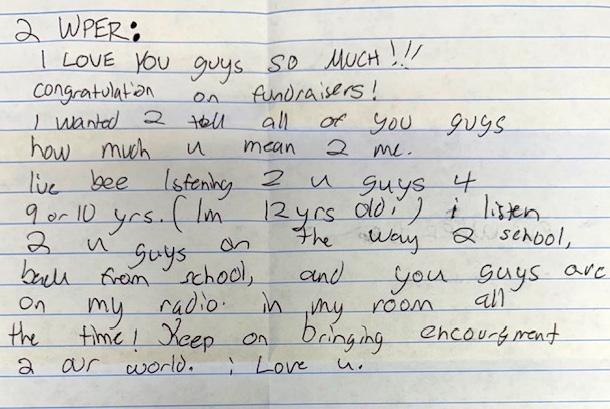 2 WPER:
I LOVE YOU guys SO MUCH!!!
congratulation on fundraisers!
I wanted 2 tell all of you guys
how much u mean 2 me.
I've bee lstening 2 u guys 4
9 or 10 yrs. (Im 12 yrs old;) i listen
2 u guys on the way 2 school,
back from school, and you guys are
on my radio. in my room all
the time! Keep on bringing encourgment
2 our world. i Love u.